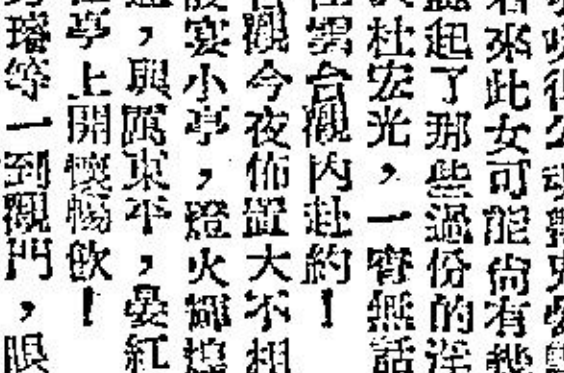 來此女可能尚有幾
起了那些過份的淫
杜宏光，一宵無話
雲台觀內赴約！
觀今夜佈置大不相
宴小亭，燈火輝煌
，與萬東平，晏紅
亭上開懷暢飲！
璿等一到觀門，眼